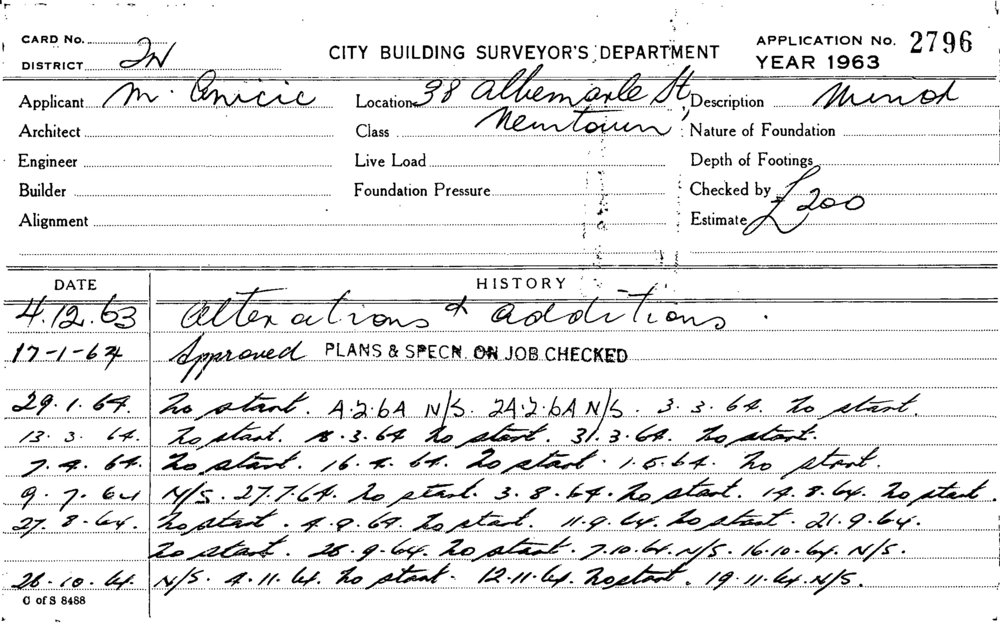 CARD No.
DISTRICT IN
CITY BUILDING SURVEYOR'S DEPARTMENT
APPLICATION No. 2796
YEAR 1963
Applicant M. Anicic
Location 38 Albemarle St,
Description Minor
Architect
Class Newtown
Nature of Foundation
Engineer
Live Load
Depth of Footings
Builder
Foundation Pressure
Checked by
Alignment
Estimate £200
DATE HISTORY
4.12.63 Alterations & additions.
17-1-64 Approved PLANS & SPECN. ON JOB CHECKED
29.1.64. No start. 4.2.64 N/S. 24.2.64 N/S. 3.3.64. No start.
13.3.64. No start. 18.3.64 No start. 31.3.64. No start.
7.4.64. No start. 16.4.64. No start. 1.5.64. No start.
9.7.64 N/S. 27.7.64. No start. 3.8.64. No start. 14.8.64. No start.
27.8.64. No start. 4.9.64 No start. 11.9.64. No start. 21.9.64.
No start. 28.9.64. No start. 7.10.64. N/S. 16.10.64. N/S.
26.10.64. N/S. 4.11.64. No start. 12.11.64 No start. 19.11.64. N/S.
C of S 8488